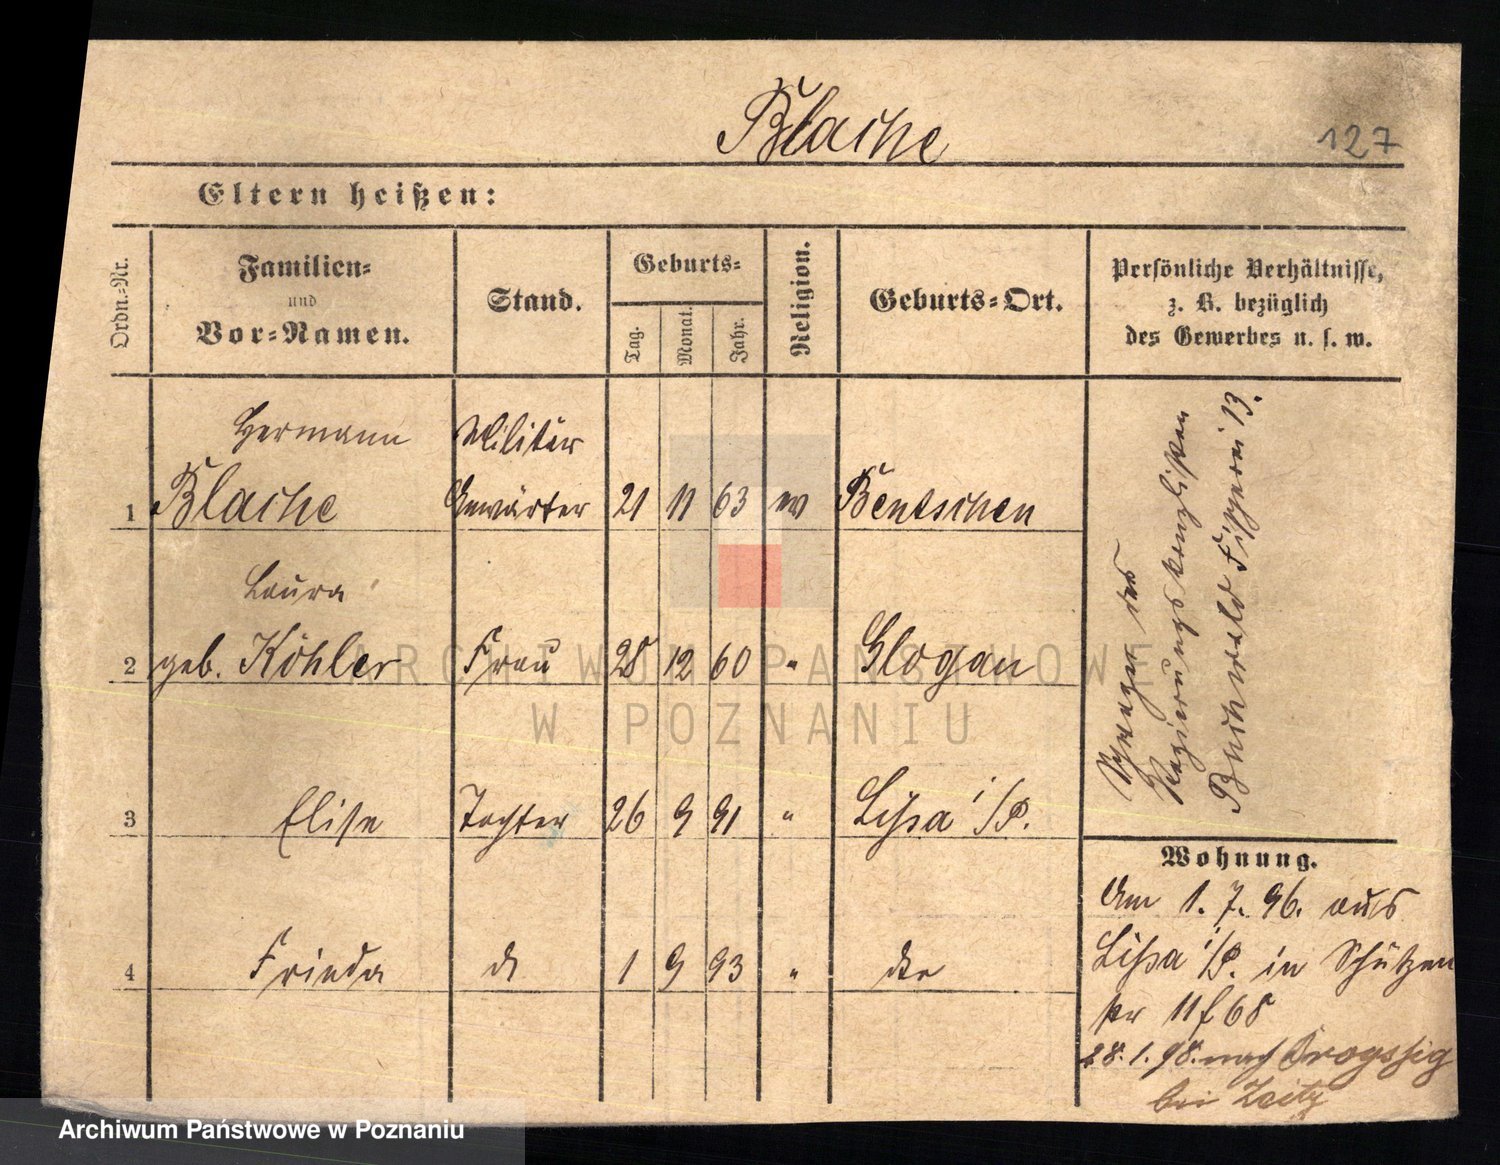 Blache
127
Eltern heißen:
Ordn.-Nr.
Familien-
und
Vor-Namen.
Stand.
Geburts-
Tag.
Monat.
Jahr.
Religion.
Geburts-Ort.
Persönliche Verhältnisse,
z. B. bezüglich
des Gewerbes u. s. w.
Hermann Militär
1 Blache Anwärter 21 11 63 ev Bentschen
Laura
2 geb. Köhler Frau 28 12 60 " Glogau
3 Elise Tochter 26 9 91 " Lissa i/P.
4 Frieda d 1 9 93 " dto
Schwager des
Regierungskanzlisten
Buchwald Fischerei 13.
Wohnung.
Am 1. 7. 96. aus
Lissa i/P. in Schützen
str 11 f 68
28. 1. 98. nach Drogssig
bei Zeitz
ARCHIWUM PAŃSTWOWE
W POZNANIU
Archiwum Państwowe w Poznaniu